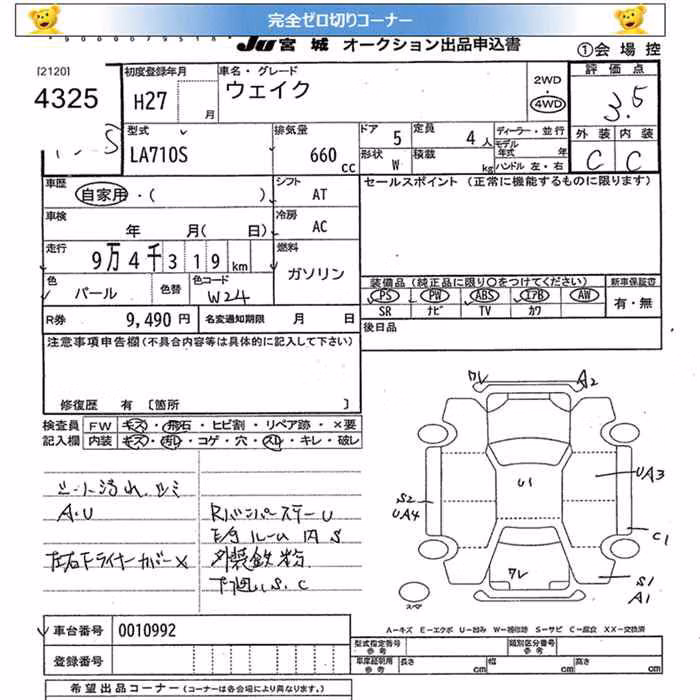 完全ゼロ切りコーナー
JU 宮城 オークション出品申込書
①会場控
[2120]
4325
初度登録年月
H27
月
車名・グレード
ウェイク
2WD
4WD
評価点
3.5
外装 内装
C C
型式
LA710S
排気量
660
cc
ドア 5
定員 4人
形状 W
積載 kg
ディーラー・並行
モデル年式 年
ハンドル 左・右
車歴
自家用・( )
シフト
AT
セールスポイント(正常に機能するものに限ります)
車検
年 月(日)
冷房
AC
走行
9万4千319km
燃料
ガソリン
色
パール
色替
色コード
W24
装備品(純正品に限り〇をつけてください)
新車保証書
PS PW ABS エアB AW
SR ナビ TV カワ
有・無
R券 9,490円
名変通知期限 月 日
後日品
注意事項申告欄(不具合内容等は具体的に記入して下さい)
修復歴 有 〔箇所 〕
検査員記入欄
FW キズ・飛石・ヒビ割・リペア跡・×要
内装 キズ・汚れ・コゲ・穴・スレ・キレ・破レ
シート汚れ、シミ
A・U
左右下ライナーカバー×
RバンパーステーU
E/gルーム内S
外装鉄粉
下廻S.C
ワレ
A2
U1
UA3
S2
UA4
C1
ワレ
S1
A1
スペア
A―キズ E―エクボ U―凹み W―補修跡 S―サビ C―腐食 XX―交換済
車台番号 0010992
登録番号
型式指定番号
参考
類別区分番号
参考
車庫証明用
参考
長さ cm
幅 cm
高さ cm
希望出品コーナー(コーナーは各会場により異なります。)